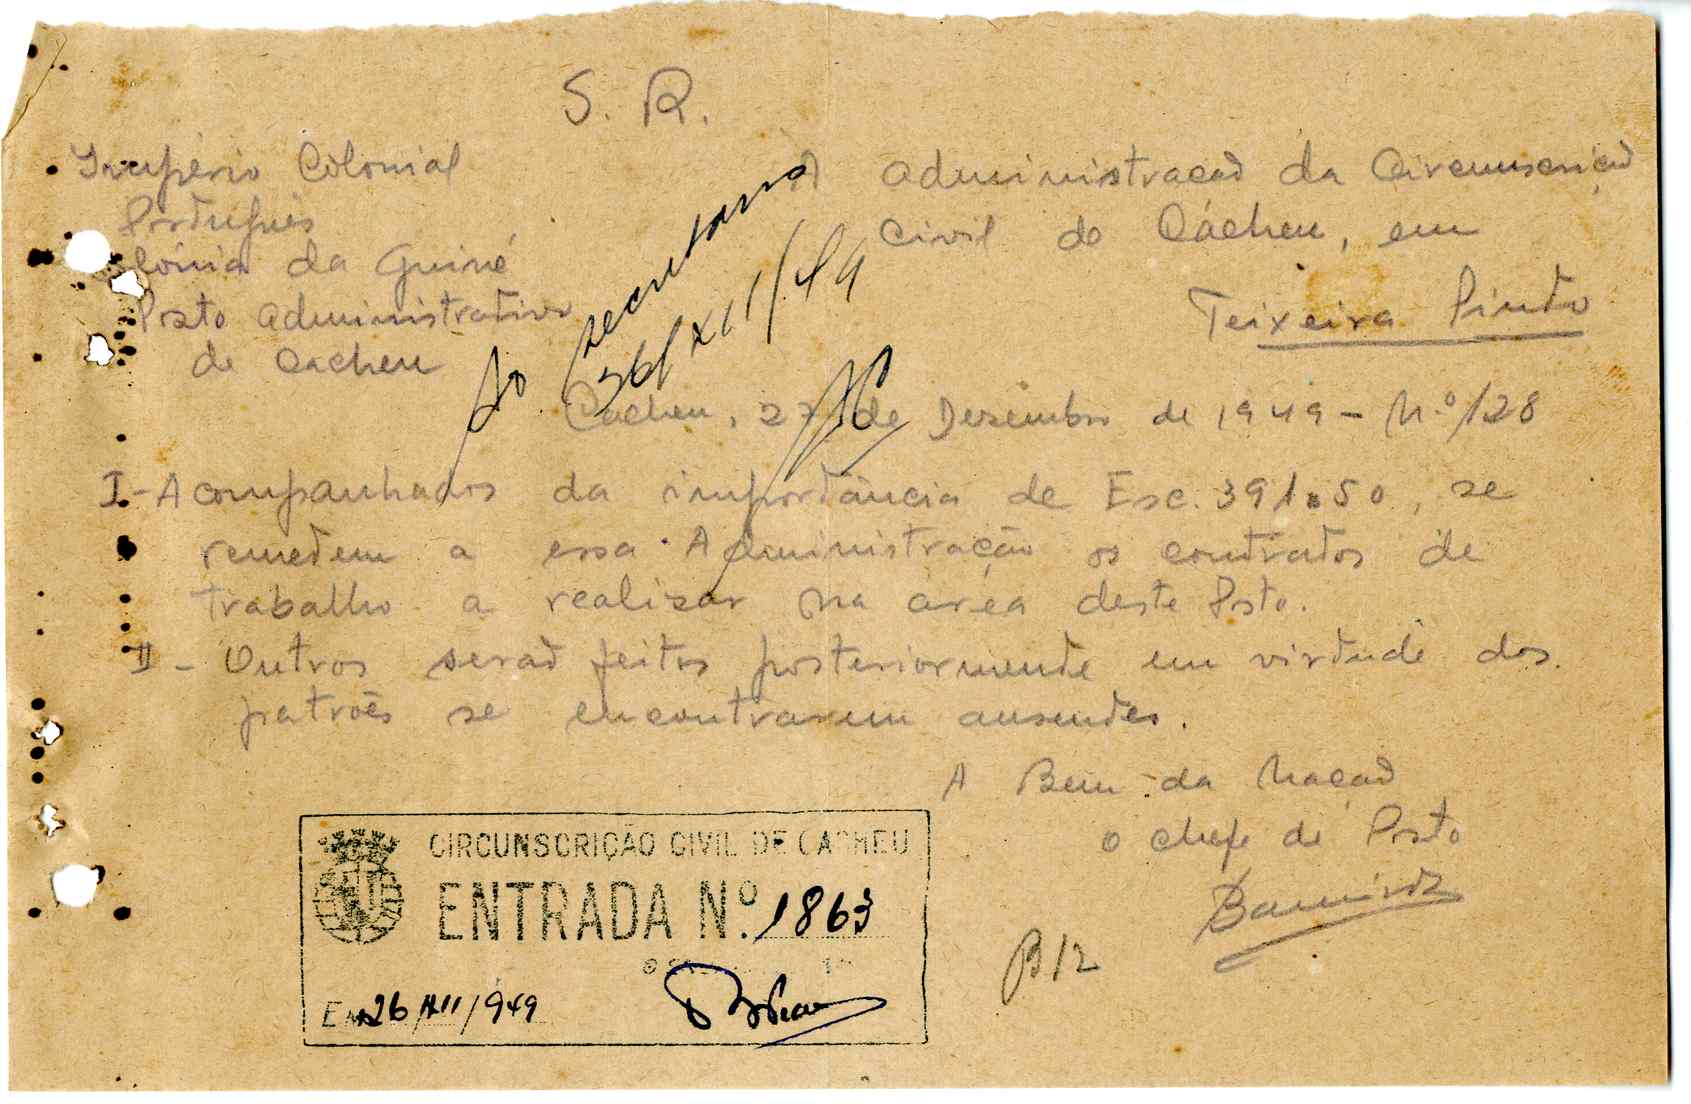 S. R.
Império Colonial
Português
Colónia da Guiné
Posto Administrativo
de Cacheu
À Administracaõ da Circunscriçaõ
Civil de Cácheu, em
Teixeira Pinto
Ao secretario
26/XII/49
Cacheu, 27 de Dezembro de 1949 - N.º 128
I - Acompanhados da importância de Esc. 391.50, se
remetem a essa Administração os contratos de
trabalho a realizar na área deste Posto.
II - Outros seraõ feitos posteriormente em virtude dos
patrões se encontrarem ausentes.
A Bem da Naçaõ
O Chefe de Posto
B/2
CIRCUNSCRIÇÃO CIVIL DE CACHEU
ENTRADA N.º 1863
Em 26/XII/949